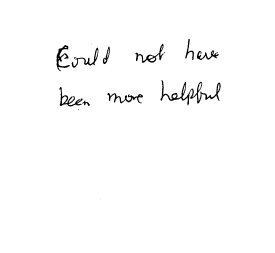 Could not have
been more helpful